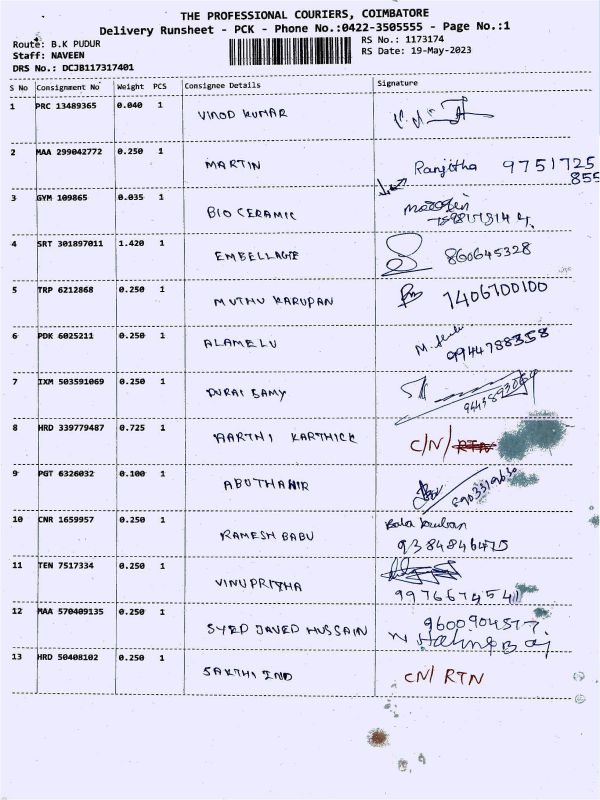 THE PROFESSIONAL COURIERS, COIMBATORE
Delivery Runsheet - PCK - Phone No.:0422-3505555 - Page No.:1
Route: B.K PUDUR RS No.: 1173174
Staff: NAVEEN RS Date: 19-May-2023
DRS No.: DCJB117317401
S No Consignment No Weight PCS Consignee Details Signature
1 PRC 13489365 0.040 1 VINOD KUMAR
2 MAA 299042772 0.250 1 MARTIN Ranjitha 9751725
855
3 GYM 109865 0.035 1 BIO CERAMIC
4 SRT 301897011 1.420 1 EMBELLAGE 860645328
5 TRP 6212868 0.250 1 MUTHU KARUPAN 7406700100
6 PDK 6025211 0.250 1 ALAMELU 9944788358
7 IXM 503591069 0.250 1 DURAI SAMY
8 HRD 339779487 0.725 1 AARTHI KARTHICK C/N/ RTN
9 PGT 6326032 0.100 1 ABUTHAHIR
10 CNR 1659957 0.250 1 RAMESH BABU
9384846475
11 TEN 7517334 0.250 1 VINUPRITHA
12 MAA 570409135 0.250 1 SYED JAVED HUSSAIN
13 HRD 50408102 0.250 1 SAKTHI IND CN/ RTN